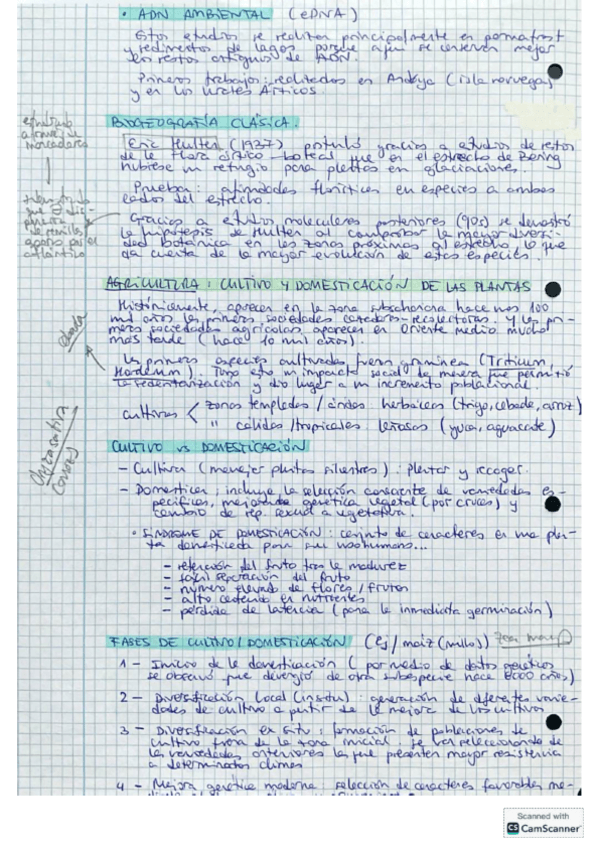 • ADN AMBIENTAL (eDNA)
Estos estudios se realizan principalmente en permafrost
y sedimentos de lagos porque aquí se conservan mejor
los restos antiguos de ADN.
Primeros trabajos: realizados en Andoya (isla noruega)
y en los Urales Árticos.
BIOGEOGRAFÍA CLÁSICA.
Eric Hulten (1937) postuló gracias a estudios de restos
de la flora ártico-boreal que en el estrecho de Bering
hubiese un refugio para plantas en glaciaciones.
Pruebas: afinidades florísticas en especies a ambos
lados del estrecho.
Gracias a estudios moleculares posteriores (90s) se demostró
la hipótesis de Hulten al comprobar la mayor diversi-
dad botánica en las zonas próximas al estrecho, lo que
da cuenta de la mayor evolución de estas especies.
estudiando
a través de
marcadores
AGRICULTURA: CULTIVO Y DOMESTICACIÓN DE LAS PLANTAS
Históricamente, aparecen en la zona subsahariana hace unos 100
mil años las primeras sociedades cazadoras-recolectoras. Y las pri-
meras sociedades agrícolas aparecen en Oriente medio mucho
más tarde (hace 10 mil años).
cebada
Las primeras especies cultivadas fueron gramíneas (Triticum,
Hordeum). Tuvo esto un impacto social de manera que permitió
la sedentarización y dio lugar a un incremento poblacional.
cultivos < zonas templadas / áridas herbáceas (trigo, cebada, arroz)
" cálidas / tropicales leñosas (yuca, aguacate)
CULTIVO VS DOMESTICACIÓN
- Cultivar (manejar plantas silvestres): plantar y recoger.
- Domesticar: incluye la selección consciente de variedades es-
pecíficas, mejorando genética vegetal (por cruces) y
cambio de rep. sexual a vegetativa.
• SÍNDROME DE DOMESTICACIÓN: conjunto de caracteres en una plan-
ta domesticada para su uso humano...
- retención del fruto tras la madurez
- fácil separación del fruto
- número elevado de flores / frutos
- alto contenido en nutrientes
- pérdida de latencia (para la inmediata germinación)
FASES DE CULTIVO / DOMESTICACIÓN (Ej / maíz (millo)) Zea mays
1 - Inicio de la domesticación (por medio de datos genéticos
se observó que divergió de otra subespecie hace 9000 años)
2 - Diversificación local (in situ): generación de diferentes varie-
dades de cultivo a partir de la mejora de los cultivos
3 - Diversificación ex situ: formación de poblaciones de
cultivo fuera de la zona inicial. Se van seleccionando de
las variedades anteriores las que presenten mayor resistencia
a determinados climas
4 - Mejora genética moderna: selección de caracteres favorables me-
Scanned with
CS CamScanner